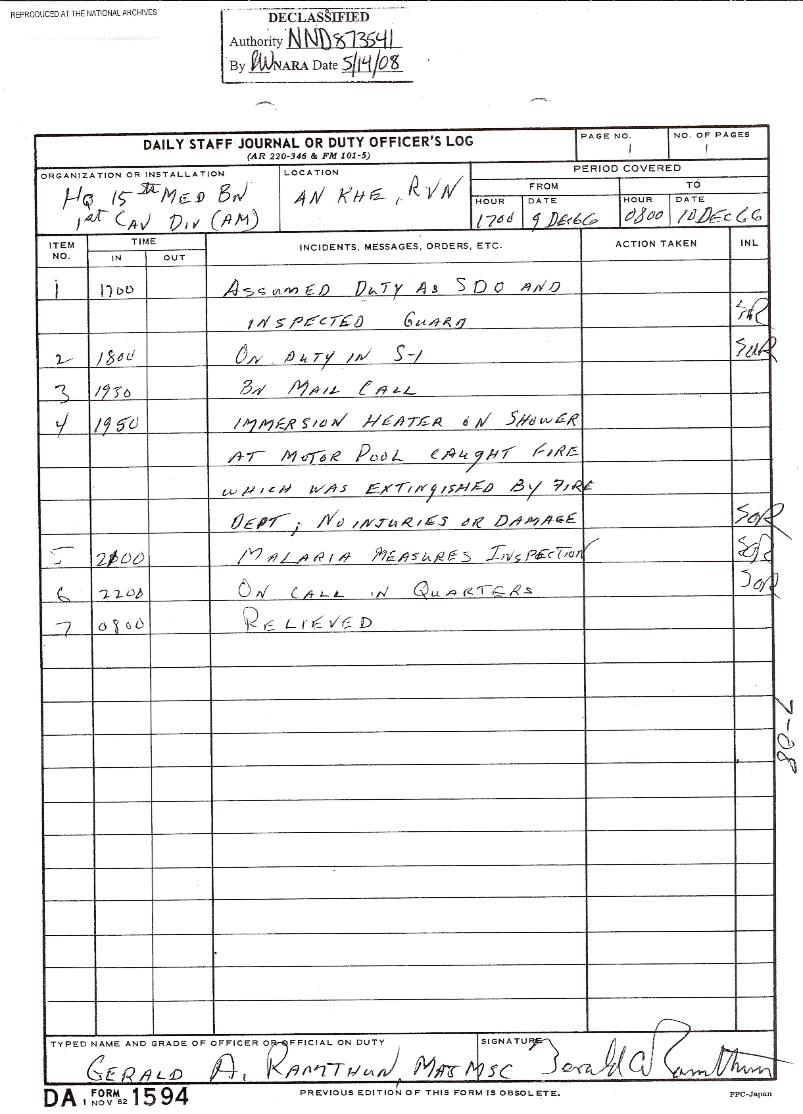 REPRODUCED AT THE NATIONAL ARCHIVES
DECLASSIFIED
Authority NND873541
By NARA Date 5/14/08
DAILY STAFF JOURNAL OR DUTY OFFICER'S LOG
(AR 220-346 & FM 101-5)
PAGE NO.
1
NO. OF PAGES
1
ORGANIZATION OR INSTALLATION
HQ 15th MED BN
1st CAV DIV (AM)
LOCATION
AN KHE, RVN
PERIOD COVERED
FROM
TO
HOUR DATE HOUR DATE
1700 9 DEC66 0800 10 DEC 66
ITEM NO.
TIME
IN OUT
INCIDENTS, MESSAGES, ORDERS, ETC.
ACTION TAKEN
INL
1 1700 ASSUMED DUTY AS SDO AND
INSPECTED GUARD
2 1800 ON DUTY IN S-1
3 1930 BN MAIL CALL
4 1950 IMMERSION HEATER ON SHOWER
AT MOTOR POOL CAUGHT FIRE
WHICH WAS EXTINGISHED BY FIRE
DEPT; NO INJURIES OR DAMAGE
5 2100 MALARIA MEASURES INSPECTION
6 2200 ON CALL IN QUARTERS
7 0800 RELIEVED
7-08
TYPED NAME AND GRADE OF OFFICER OR OFFICIAL ON DUTY
GERALD A. RAMTHUN, MAJ MSC
SIGNATURE
Gerald A Ramthun
DA FORM 1594
1 NOV 62
PREVIOUS EDITION OF THIS FORM IS OBSOLETE.
PPC-Japan